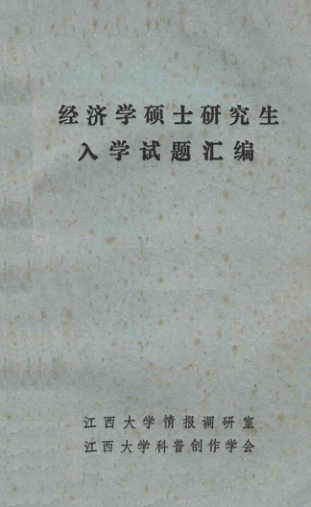 经济学硕士研究生
入学试题汇编
江西大学情报调研室
江西大学科普创作学会